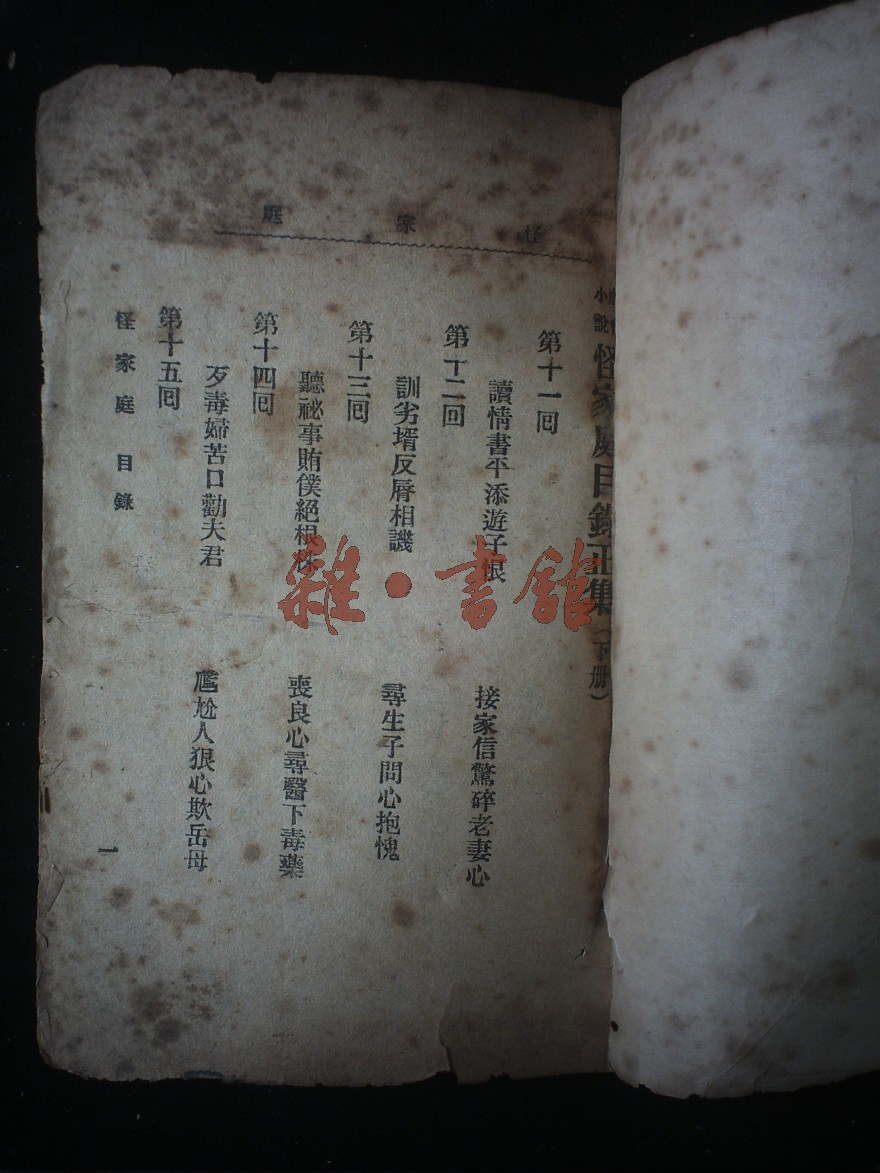 怪家庭
小說 怪家庭目錄正集(下册)
第十一囘
讀情書平添遊子恨 接家信驚碎老妻心
第十二回
訓劣壻反脣相譏 尋生子問心抱愧
第十三囘
聽祕事賄僕絕根株 喪良心尋醫下毒藥
第十四囘
歹毒婦苦口勸夫君 尷尬人狠心欺岳母
第十五囘
怪家庭 目錄
一
雜·書館